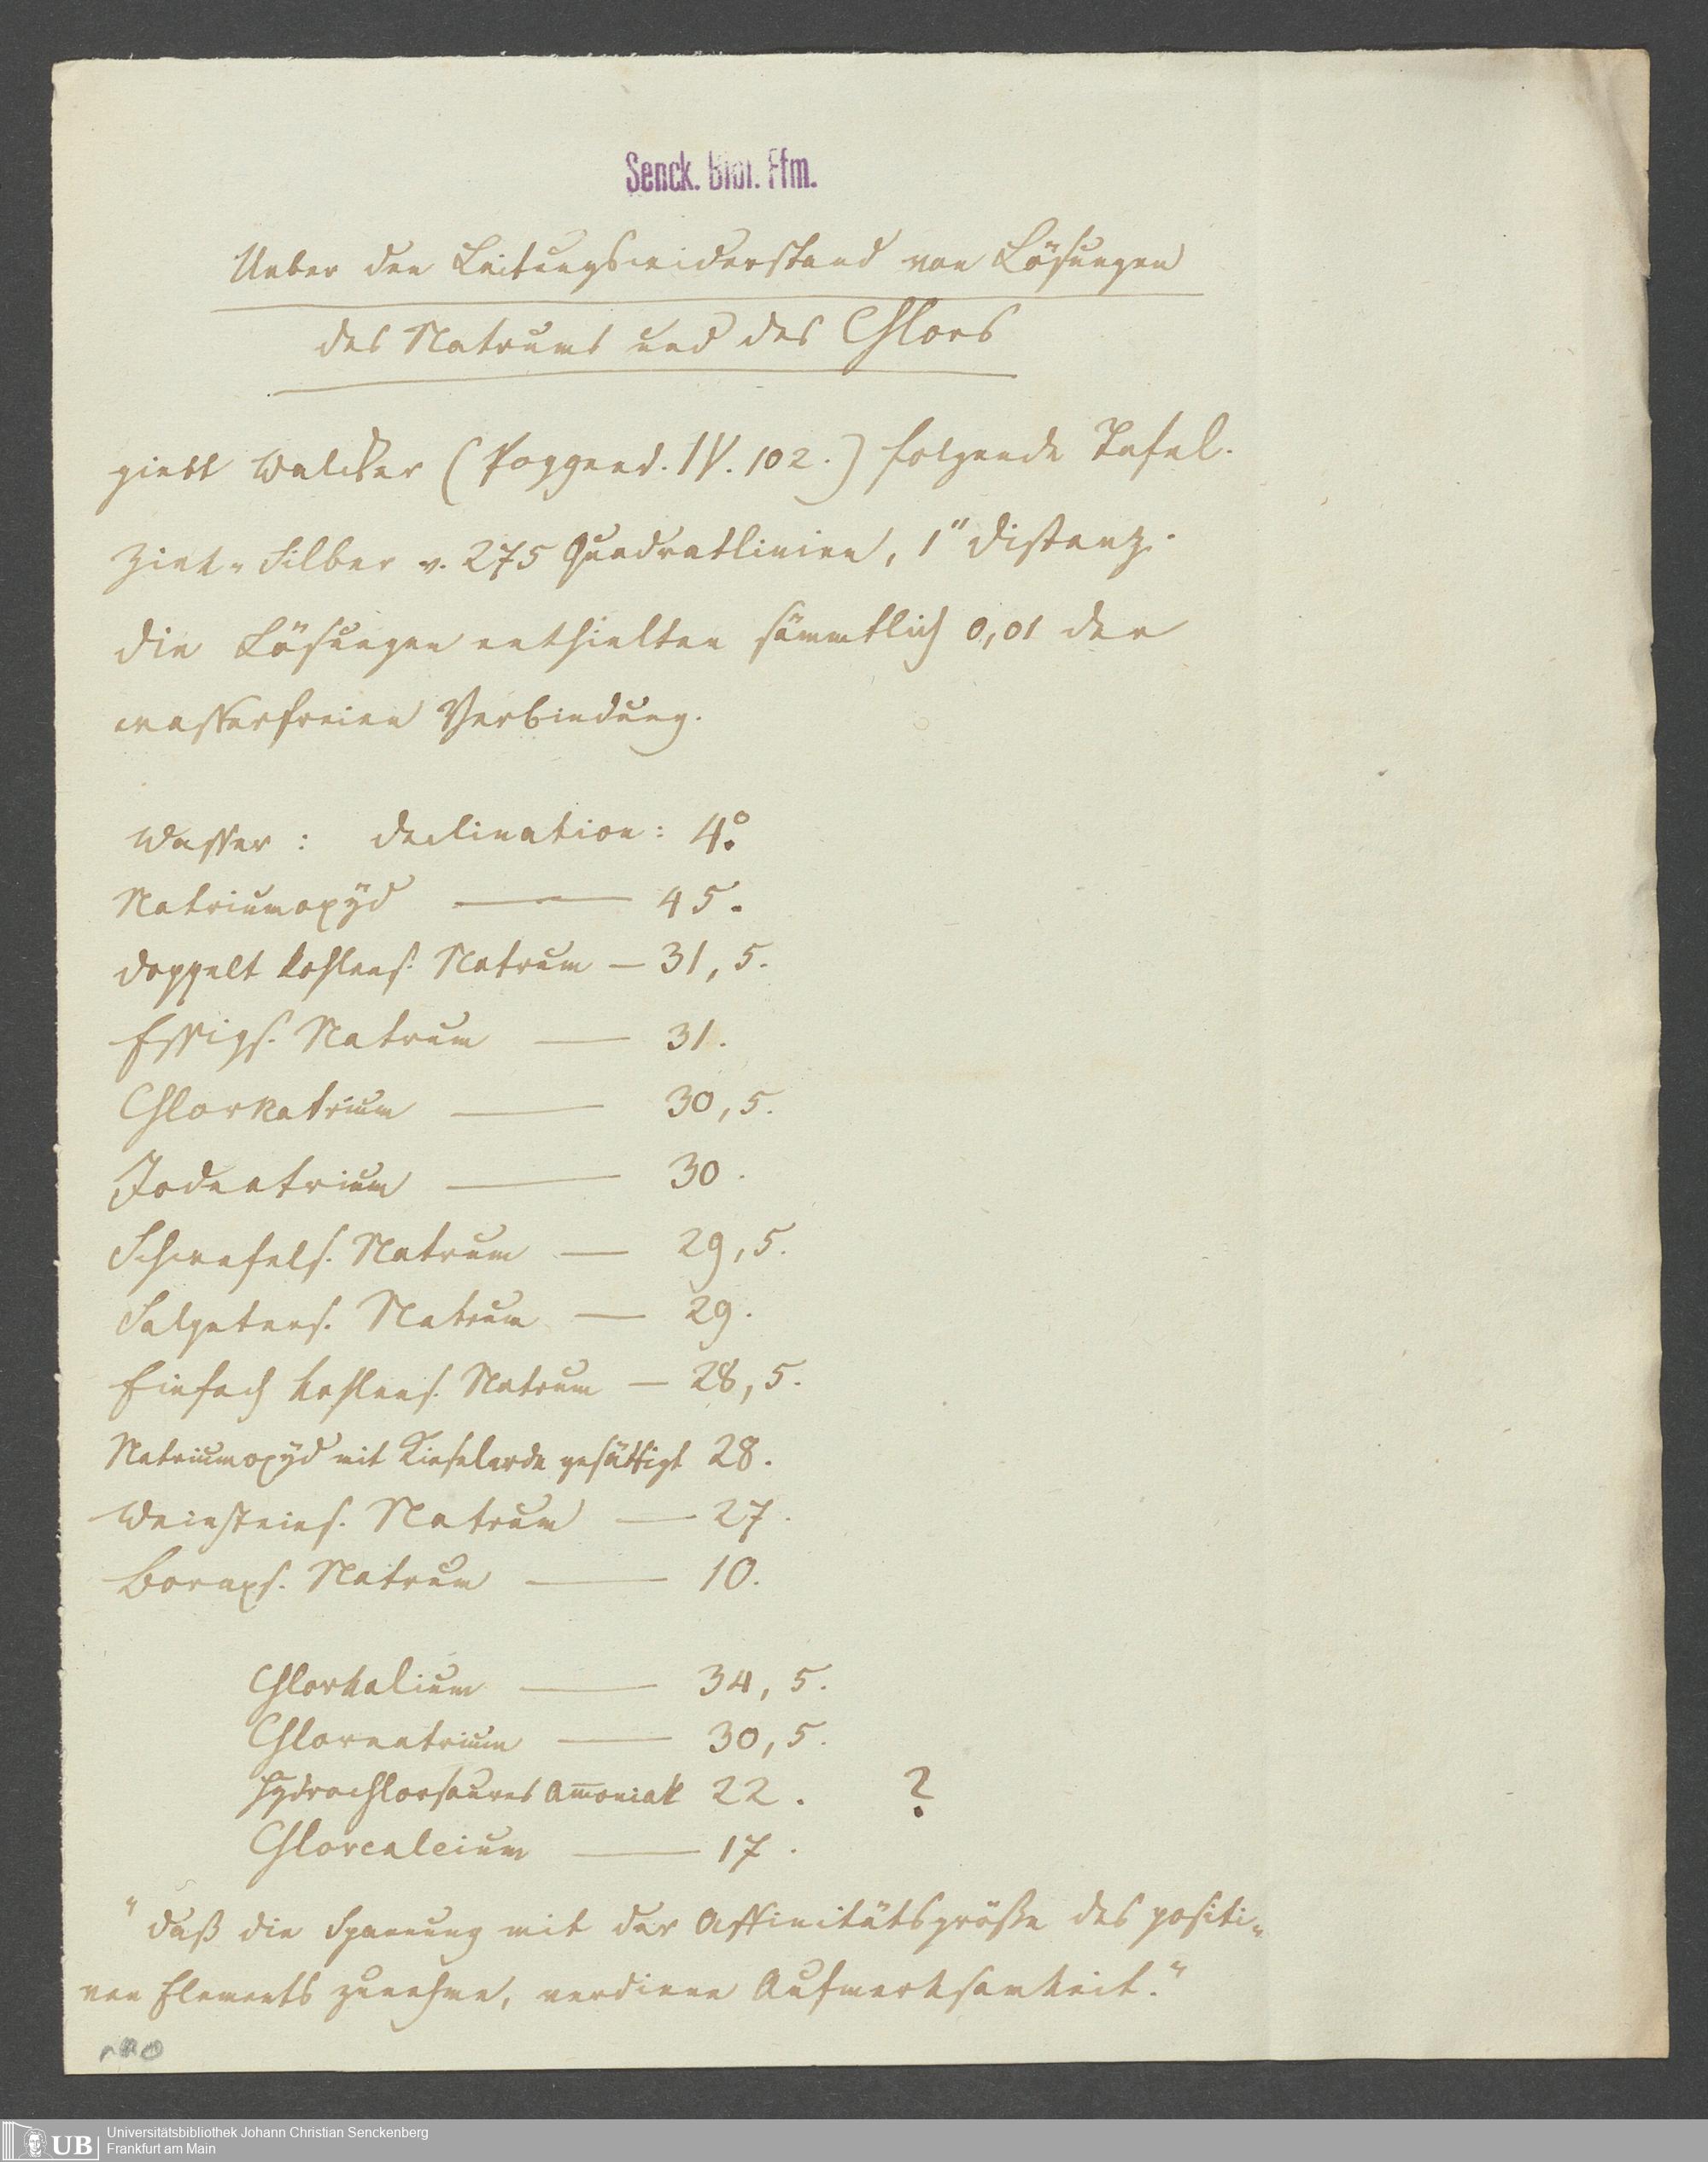 Senck. Bibl. Ffm.
Ueber den Leitungswiderstand von Lösungen
des Natrums und des Chlors
giebt Walcker (Poggend. IV. 102.) folgende Tafel.
Zink-Silber v. 275 Quadratlinien, 1" Distanz.
Die Lösungen enthielten sämmtlich 0,01 der
wasserfreien Verbindung.
Wasser: Declination: 4°.
Natriumoxÿd — 45.
Doppelt kohlens. Natrum — 31,5.
Essigs. Natrum — 31.
Chlornatrium — 30,5.
Jodnatrium — 30.
Schwefels. Natrum — 29,5.
Salpeters. Natrum — 29.
Einfach kohlens. Natrum — 28,5.
Natriumoxÿd mit Kieselerde gesättigt 28.
Weinsteins. Natrum — 27.
Boraxs. Natrum — 10.
Chlorkalium — 34,5.
Chlornatrium — 30,5.
Hydrochlorsaures Am̅oniak 22. ?
Chlorcalcium — 17.
"Daß die Spannung mit der Affinitätsgröße des positi-
ven Elements zunehme, verdiene Aufmerksamkeit."
UB
Universitätsbibliothek Johann Christian Senckenberg
Frankfurt am Main